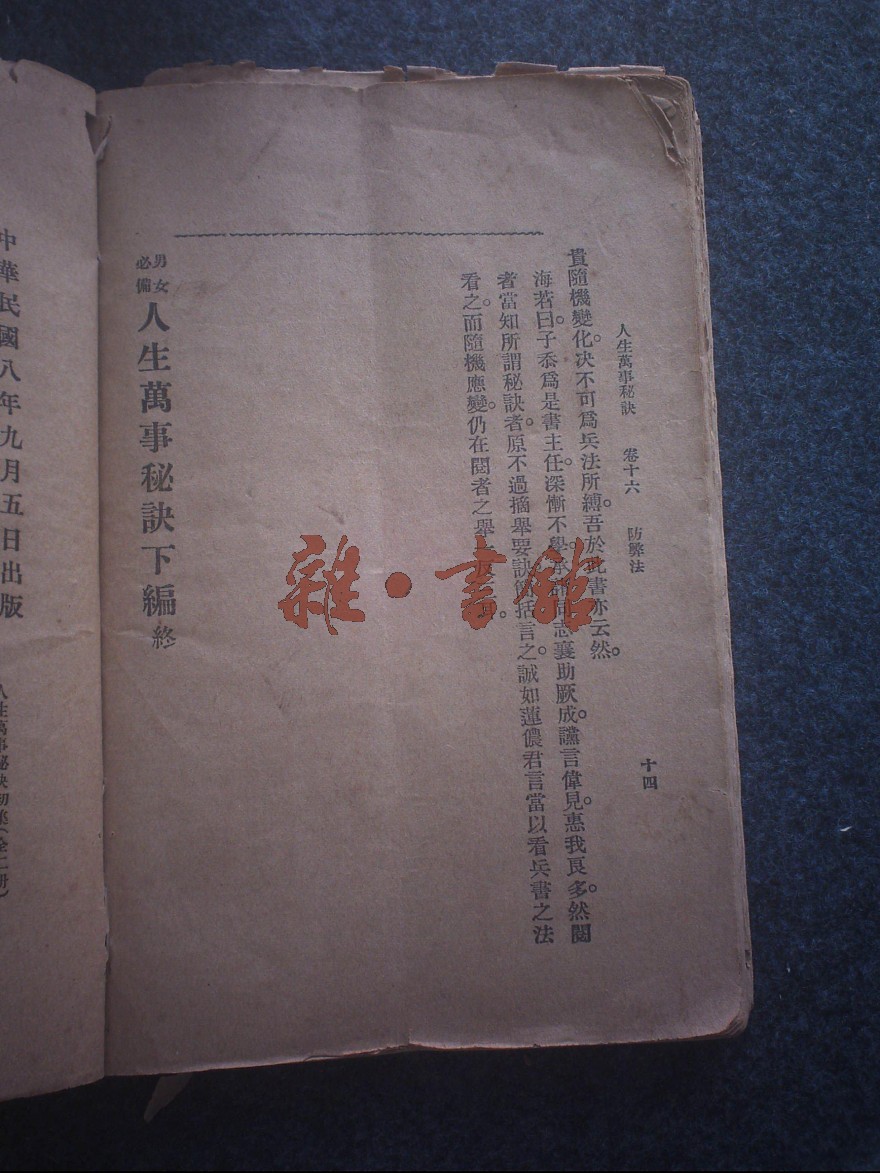 人生萬事秘訣 卷十六 防弊法 十四
貴隨機變化。決不可爲兵法所縛。吾於此書亦云然。
海若曰。子忝爲是書主任。深慚不學。承諸同志襄助厥成。讜言偉見。惠我良多。然閱
者當知所謂秘訣者。原不過摘舉要訣。括言之。誠如蓮儂君言。當以看兵書之法
看之。而隨機應變。仍在閱者之舉
男女必備 人生萬事秘訣下編 終
中華民國八年九月五日出版
人生萬事秘訣初集(全二册)
雜·書館